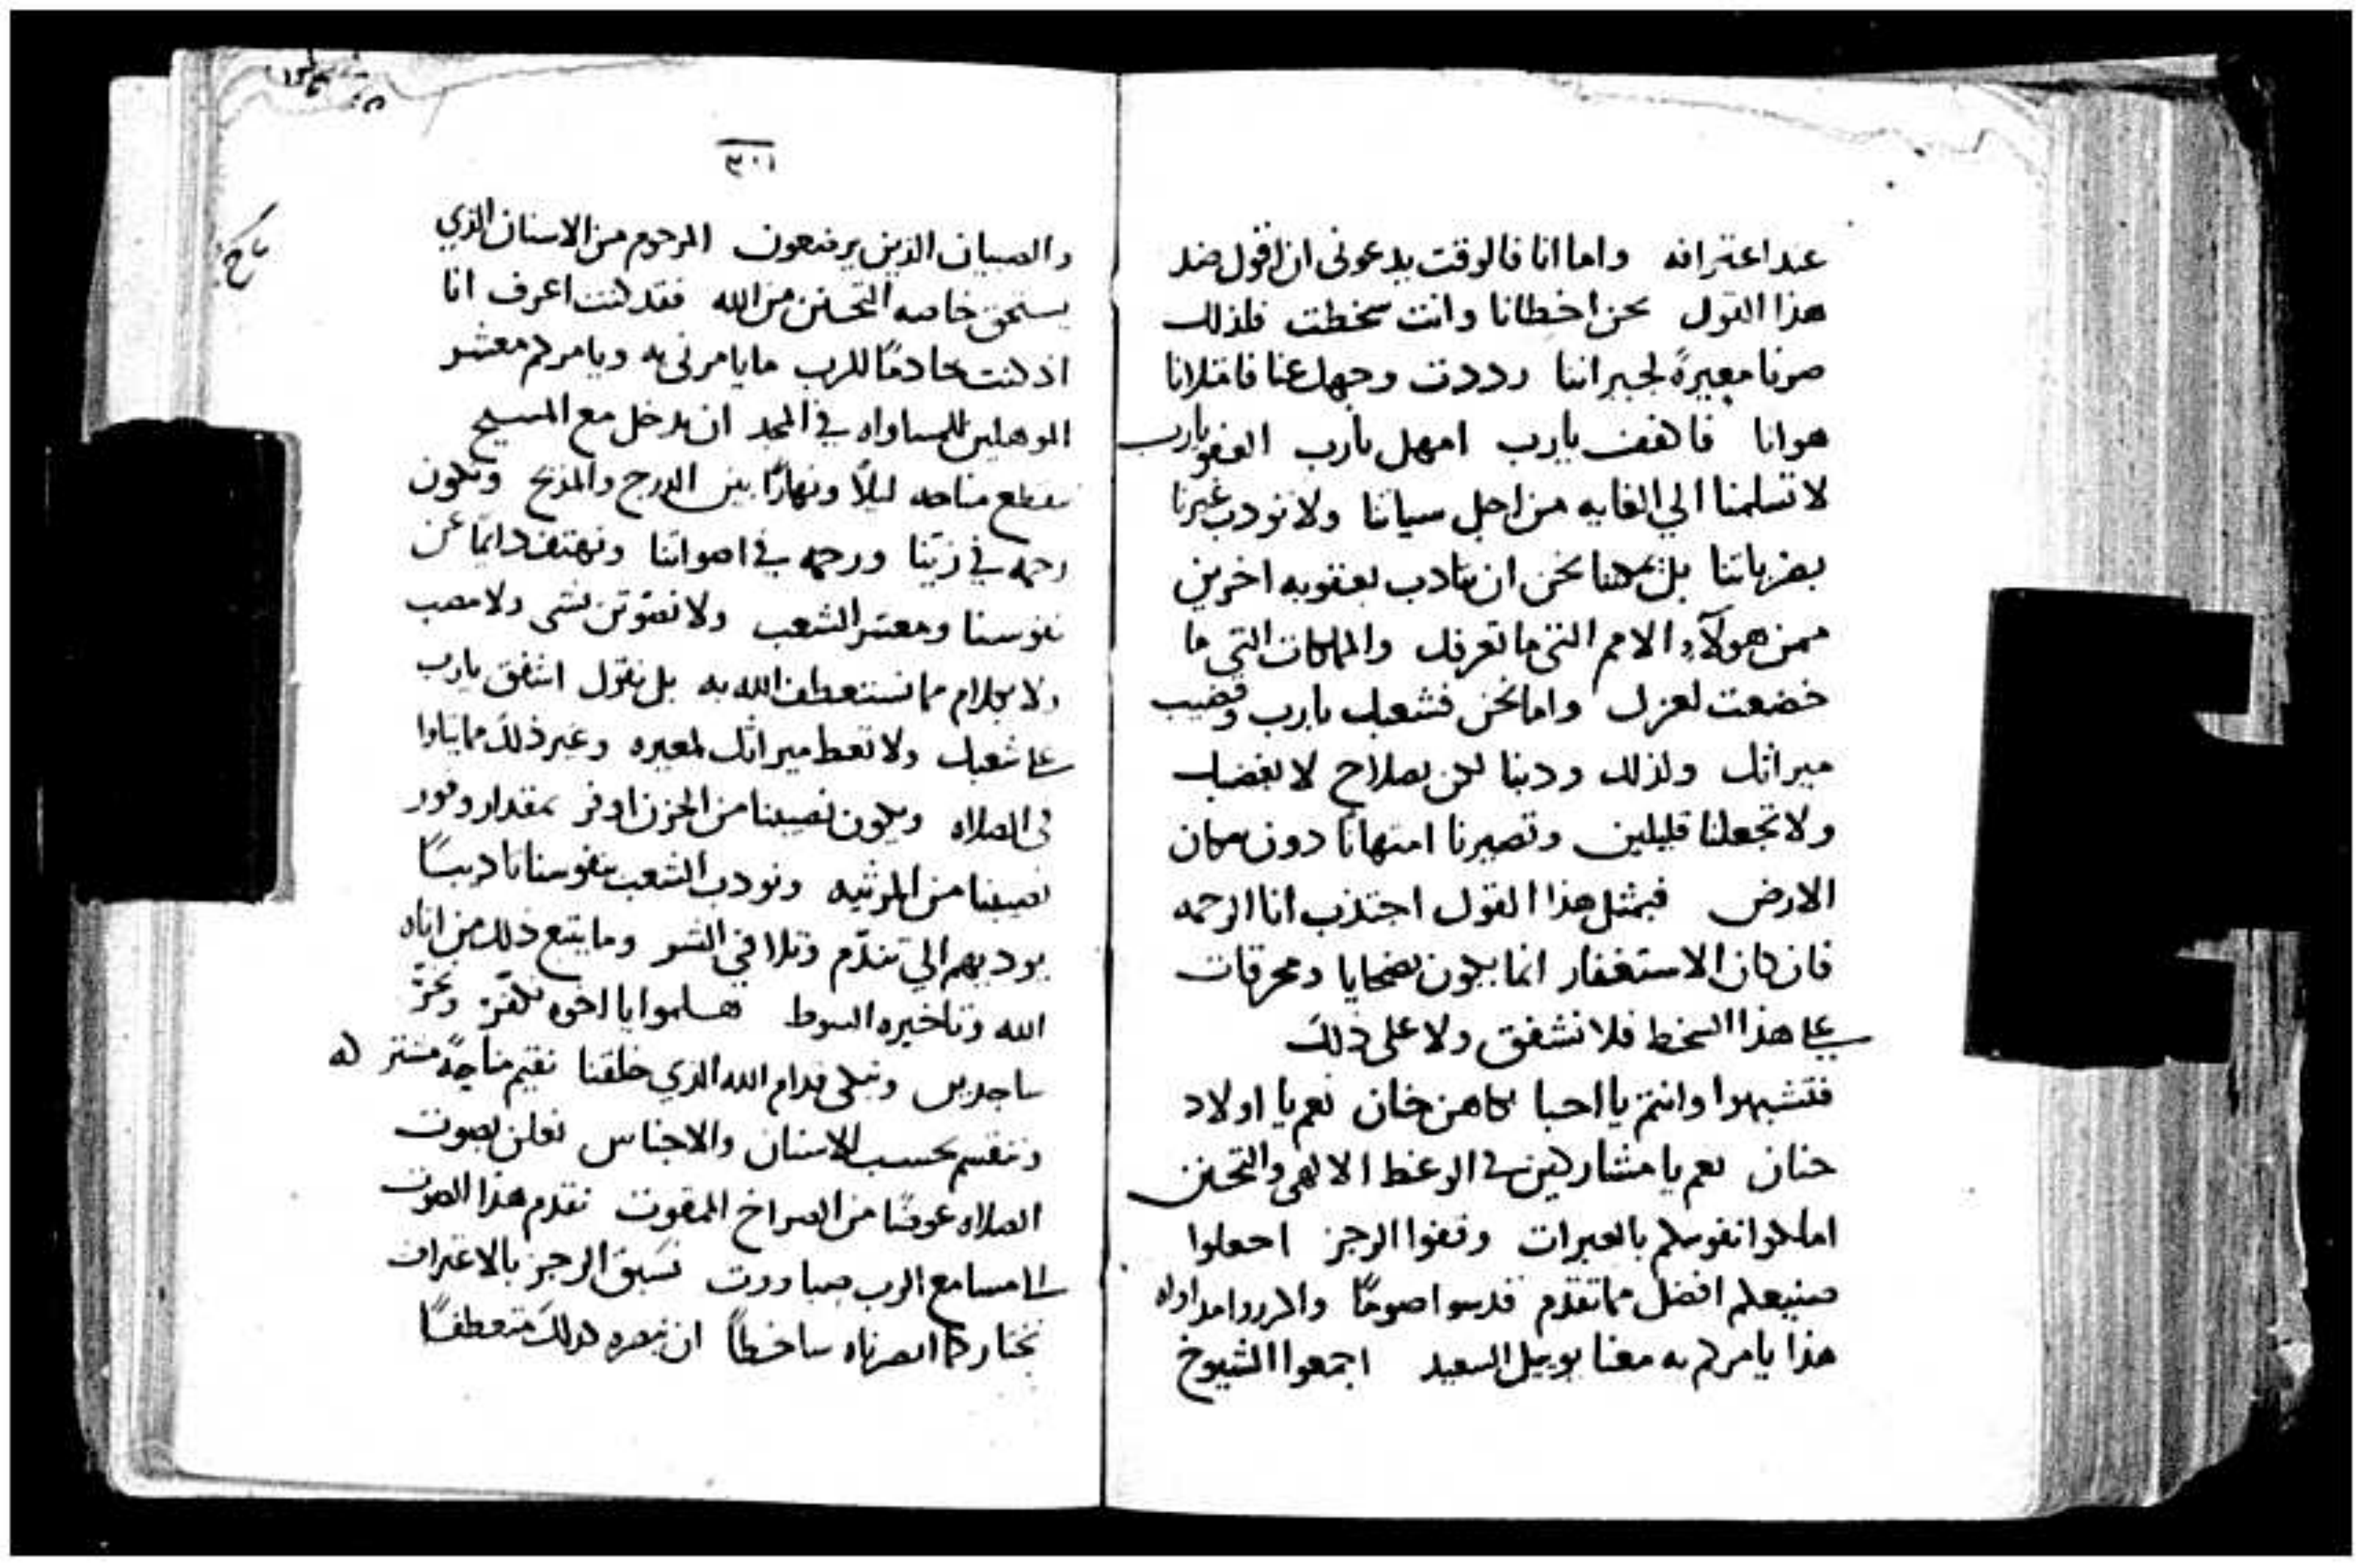 عند اعترافه واما انا فالوقت يدعونى ان اقول ضد
هذا القول نحن اخطانا وانت سخطت فلذلك
صرنا معيرةً لجيراننا رددت وجهك عنا فامتلانا
هوانا فاكفف يارب امهل يارب اغفر يارب
لا تسلمنا الي الغايه من اجل سياتنا ولا تودب غيرنا
بضرباتنا بل يمكننا نحن ان نتادب بعقوبه اخرين
ممن هولآء الامم التى ما تعرفك والمملكات التى ما
خضعت لعزك واما نحن فشعبك يارب وقضيب
ميراثك ولذلك ودبنا لكن بصلاح لا بغضبك
ولا تجعلنا قليلين وتصيرنا امتهانا دون سكان
الارض فبمثل هذا القول اجتذب انا الرحمه
فان كان الاستغفار انما يكون بضحايا ومحرقات
على هذا السخط فلا نشفق ولا على ذلك
فتشبهوا وانتم يا احبا بكاهن خان نعم يا اولاد
حنان نعم يا مشاركين فى الوعظ الالهى والتحنن
املكوا نفوسكم بالعبرات وقفوا الرجز اجعلوا
صنيعكم افضل مما تقدم قدسوا صومًا واكرزوا مداواه
هذا يامركم به معنا يوييل السعيد اجمعوا الشيوخ
٣٠١
والصبيان الذين يرضعون المرحوم من الاسنان الذي
يستحق خاصه التحنن من الله فقد كنت اعرف انا
اذ كنت خادمًا للرب ما يامرنى به ويامركم معشر
الموهلين للمساواه في المجد ان ندخل مع المسيح
نقطع مناحه ليلًا ونهارًا بين الدرج والمذبح ونكون
رحمه في زيّنا ورحمه في اصواتنا ونهتف دايمًا عن
نفوسنا ومعشر الشعب ولا نفوتن بشى ولا متعب
ولا بكلام مما نستعطف الله به بل نقول اشفق يارب
على شعبك ولا تعط ميراثك لمعيره وغير ذلك مما يتلوا
فى الصلاه ويكون نصيبنا من الحزن اوفر بمقدار وفور
نصيبنا من المرثيه ونودب الشعب بنفوسنا تاديبًا
يوديهم الي تندّم وتلافي الشر وما يتبع ذلك من اناه
الله وتاخيره السوط هلموا يا اخوه نكفرّ ونخرّ
ساجدين ونبكى قدام الله الذي خلقنا نقيم مناحهً مشتركه
وننقسم بحسب الاسنان والاجناس نعلن بصوت
الصلاه عوضًا من الصراخ الممقوت نقدم هذا الصوت
الى مسامع الرب صباووت نسبق الرجز بالاعتراف
نختار كما ابصرناه ساخطاً ان نبصره كذلك متعطفًا